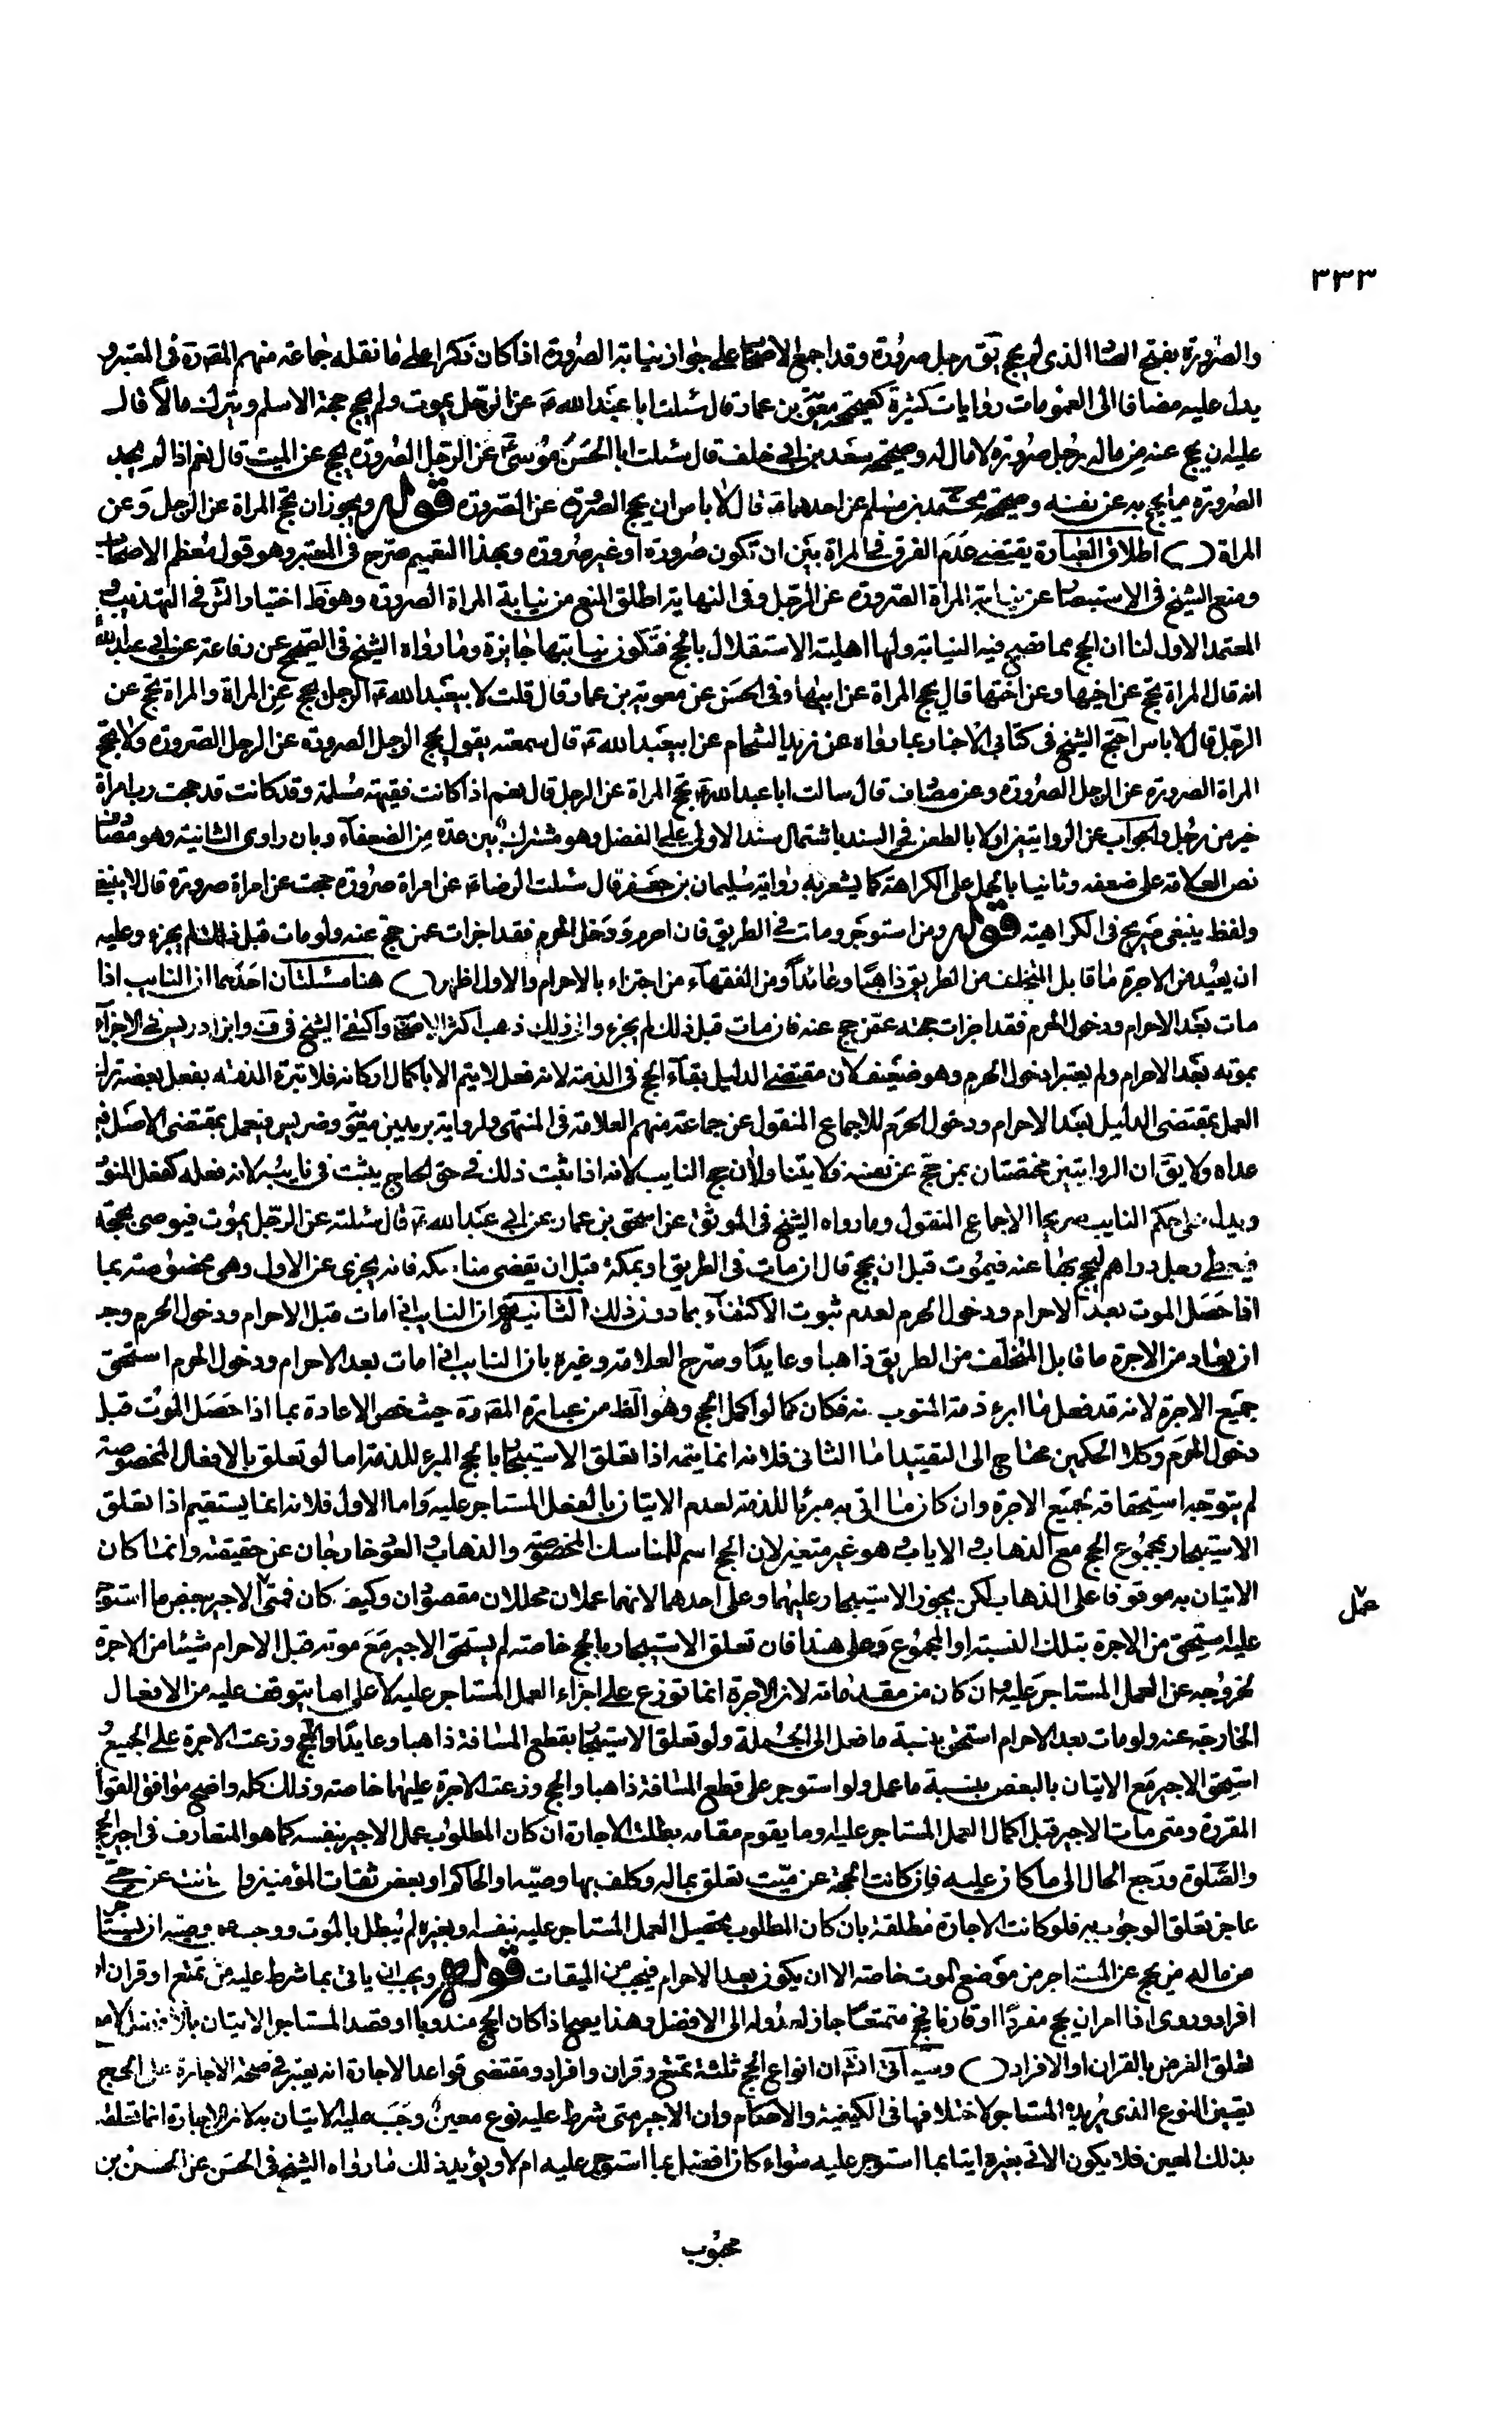 ٣٣٣
والصرورة بفتح الصاد الذي لم يحج يق رجل صرورة وقد اجمع الاصحاب على جواز نيابة الصرورة اذا كان ذكرا على ما نقله جماعة منهم المص ره في المعتبر و
يدل عليه مضافا الى العمومات روايات كثيرة كصحيحة معوية بن عمار قال سئلت ابا عبد الله ع عن الرجل يموت ولم يحج حجة الاسلم ويترك مالا قال
عليه ان يحج عنه من ماله رجل صرورة لا مال له وصحيحة سعد بن ابي خلف قال سئلت ابا الحسن موسى ع عن الرجل الصرورة يحج عن الميت قال نعم اذا لم يجد
الصرورة ما يحج به عن نفسه وصحيحة محمد بن مسلم عن احدهما ع قال لا باس ان يحج الصرورة عن الصرورة قوله ويجوز ان تحج المراة عن الرجل وعن
المراة ( ) اطلاق العبارة يقتضي عدم الفرق في المراة بين ان تكون صرورة او غير صرورة وبهذا التعميم صرح في المعتبر وهو قول معظم الاصحاب
ومنع الشيخ في الاستبصار عن نيابة المراة الصرورة عن الرجل وفي النهاية اطلق المنع من نيابة المراة الصرورة وهو ظ اختيار الش في التهذيب و
المعتمد الاول لنا ان الحج مما تصح فيه النيابة ولها اهلية الاستقلال بالحج فتكون نيابتها جايزة وما رواه الشيخ في الصحيح عن رفاعة عن ابي عبد الله
انه قال المراة تحج عن اخيها وعن اختها قال تحج المراة عن ابيها وفي الحسن عن معوية بن عمار قال قلت لابيعبد الله ع الرجل يحج عن المراة والمراة تحج عن
الرجل قال لا باس احتج الشيخ في كتابي الاخبار بما رواه عن زيد الشحام عن ابيعبد الله ع قال سمعته يقول يحج الرجل الصرورة عن الرجل الصرورة ولا تحج
المراة الصرورة عن الرجل الصرورة وعن مصادف قال سالت ابا عبد الله ع تحج المراة عن الرجل قال نعم اذا كانت فقيهة مسلمة وقد كانت قد حجت رب امراة
خير من رجل والجواب عن الروايتين اولا بالطعن في السند باشتمال سند الاولى على المفضل وهو مشترك بين عدة من الضعفاء وبان راوي الثانية وهو مصادف
نص العلامة على ضعفه وثانيا بالحمل على الكراهة كما يشعر به رواية سليمان بن جعفر قال سئلت الرضا ع عن امراة صرورة حجت عن امراة صرورة قال لا ينبغي
ولفظ ينبغي صريح في الكراهية قوله ومن استوجر ومات في الطريق فان احرم ودخل الحرم فقد اجزات عمن حج عنه ولو مات قبل ذلك لم يجزء وعليه
ان يعيد من الاجرة ما قابل المتخلف من الطريق ذاهبا وعائدا ومن الفقهاء من اجتزء بالاحرام والاول اظهر ( ) هنا مسئلتان احدهما ان النايب اذا
مات بعد الاحرام ودخول الحرم فقد اجزات حجته عمن حج عنه فان مات قبل ذلك لم يجزء والى ذلك ذهب اكثر الاصحاب واكتفى الشيخ في ف وابن ادريس في الاجزاء
بموته بعد الاحرام ولم يعتبرا دخول الحرم وهو ضعيف لان مقتضى الدليل بقاء الحج في الذمة لانه فعل لا يتم الا باكمال اركانه فلا تبرء الذمة بفعل بعضه ترك
العمل بمقتضى الدليل بعد الاحرام ودخول الحرم للاجماع المنقول عن جماعة منهم العلامة في المنتهى ولرواية بريد بن معوية وضريس فيعمل بمقتضى الاصل فيما
عداه ولا يق ان الروايتين مختصتان بمن حج عن نفسه فلا يتناولان حج النايب لانه اذا ثبت ذلك في حق الحاج يثبت في نايبه لانه فعله كفعل المنوب
ويدل على حكم النايب صريحا الاجماع المنقول وما رواه الشيخ في الموثق عن اسحق بن عمار عن ابي عبد الله ع قال سئلته عن الرجل يموت فيوصي بحجة
فيعطى رجل دراهم ليحج بها عنه فيموت قبل ان يحج قال ان مات في الطريق او بمكة قبل ان يقضي مناسكه فانه يجزي عن الاول وهي مخصوصة بما
اذا حصل الموت بعد الاحرام ودخول الحرم لعدم ثبوت الاكتفاء بما دون ذلك الثانية ان النايب اذا مات قبل الاحرام ودخول الحرم وجب
ان يعاد من الاجرة ما قابل المتخلف من الطريق ذاهبا وعايدا وصرح العلامة وغيره بان النايب اذا مات بعد الاحرام ودخول الحرم استحق
جميع الاجرة لانه قد فعل ما ابرء ذمة المنوب عنه فكان كما لو اكمل الحج وهو الظ من عبارة المص ره حيث خص الاعادة بما اذا حصل الموت قبل
دخول الحرم وكلا الحكمين محتاج الى التقييد اما الثاني فلانه انما يتم اذا تعلق الاستيجار بالحج المبرء للذمة اما لو تعلق بالافعال المخصوصة
لم يتوجه استحقاقه لجميع الاجرة وان كان ما اتى به مبرئا للذمة لعدم الاتيان بالفعل المستاجر عليه واما الاول فلانه انما يستقيم اذا تعلق
الاستيجار بمجموع الحج مع الذهاب والاياب وهو غير متعين لان الحج اسم للمناسك المخصوصة والذهاب والعود خارجان عن حقيقته وانما كان
الاتيان به موقوفا على الذهاب لكن يجوز الاستيجار عليهما وعلى احدهما لانهما عملان محللان مقصودان وكيف كان فمتى الاجير بعض ما استوجر
عمل
عليه استحق من الاجرة بتلك النسبة او المجموع وعلى هذا فان تعلق الاستيجار بالحج خاصة لم يستحق الاجير مع موته قبل الاحرام شيئا من الاجرة
لخروجه عن العمل المستاجر عليه وان كان من مقدماته لان الاجرة انما توزع على اجزاء العمل المستاجر عليه لا على ما يتوقف عليه من الافعال
الخارجة عنه ولو مات بعد الاحرام استحق بنسبة ما فعل الى الجملة ولو تعلق الاستيجار بقطع المسافة ذاهبا وعايدا والحج وزعت الاجرة على الجميع و
استحق الاجير مع الاتيان بالبعض بنسبة ما عمل ولو استوجر على قطع المسافة ذاهبا والحج وزعت الاجرة عليهما خاصة وذلك كله واضح موافق القواعد
المقررة ومتى مات الاجير قبل اكمال العمل المستاجر عليه وما يقوم مقامه بطلت الاجارة ان كان المطلوب عمل الاجير بنفسه كما هو المتعارف في اجير الحج
والصلوة ورجع الحال الى ما كان عليه فان كانت الحجة عن ميت تعلق بماله وكلف بها وصيه او الحاكم او بعض ثقات المؤمنين وان كانت عن حي
عاجز تعلق الوجوب به فلو كانت الاجارة مطلقة بان كان المطلوب تحصيل العمل المستاجر عليه بنفسه او بغيره لم يبطل بالموت ووجب على وصيه ان يستاجر
من ماله من يحج عن المستاجر من موضع الموت خاصة الا ان يكون بعد الاحرام فيجب من الميقات قوله ويجب ان ياتي بما شرط عليه من تمتع او قران او
افراد وروى اذا امر ان يحج مفردا او قارنا فحج متمتعا جاز لعدوله الى الافضل وهذا يصح اذا كان الحج مندوبا او قصد المستاجر الاتيان بالافضل لا مع
تعلق الفرض بالقران او الافراد ( ) وسياتي انش ان انواع الحج ثلثة تمتع وقران وافراد ومقتضى قواعد الاجارة انه يعتبر في صحة الاجارة على الحج
تعيين النوع الذي يريده المستاجر لاختلافها في الكيفية والاحكام وان الاجير متى شرط عليه نوع معين وجب عليه الاتيان به لان الاجارة انما تتعلق
بذلك المعين فلا يكون الاتي بغيره اتيا بما استوجر عليه سواء كان افضل مما استوجر عليه ام لا ويؤيد ذلك ما رواه الشيخ في الحسن عن الحسن بن
محبوب